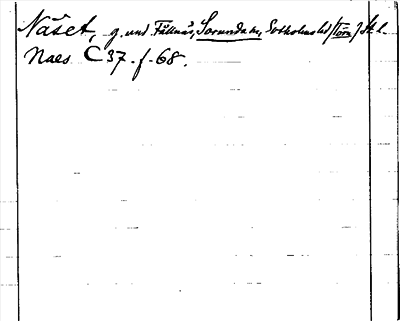 Näset, g. und. Fållnäs, Sorunda sn, Sotholms hd (Törn) Sth l.
Naes C 37. f. 68.